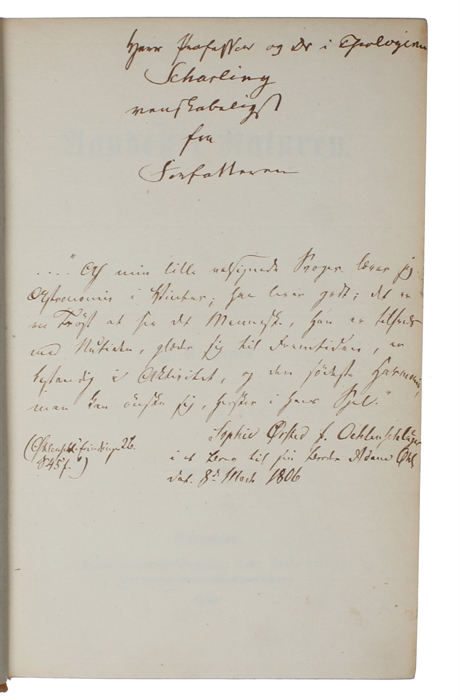 Herr Professor og Dr i Theologien
Scharling
venskabeligst
fra
Forfatteren
...." Af min lille velsignede Svoger lærer jeg
Astronomie i Vinter; han lever godt; det er
en Trøst at see det Menneske, han er tilfreds
med Nutiden, glæder sig til Fremtiden, er
bestandig i Aktivitet, og den sødeste Harmoni,
man kan ønske sig, hersker i hans Sjæl."
Sophie Ørsted f. Oehlenschläger
i et Brev til sin Broder Adam Øhl.
dat. 8d Marts 1806
(Oehlenschl. Erindringer 2 B.
S 45 f.)